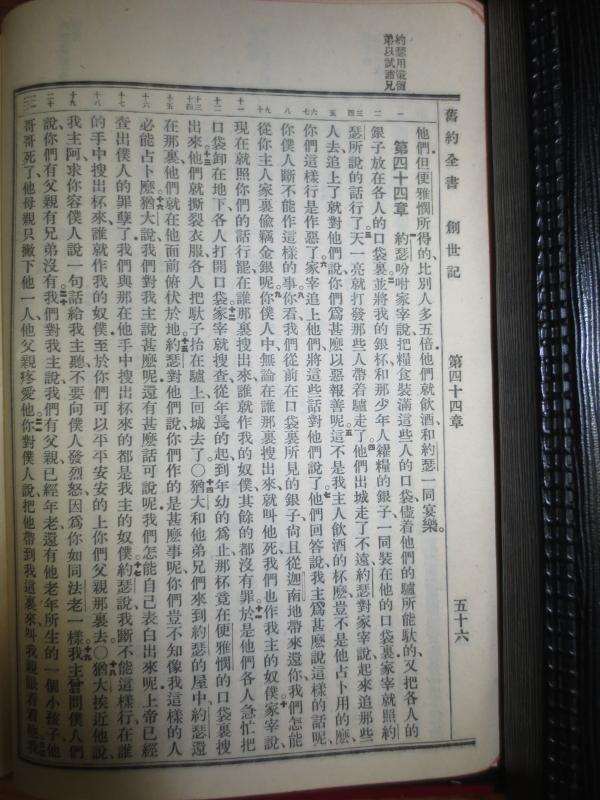 約瑟用策留
弟以試諸兄
舊約全書 創世記 第四十四章 五十六
他們但便雅憫所得的比別人多五倍他們就飲酒和約瑟一同宴樂。
第四十四章 約瑟吩咐家宰說把糧食裝滿這些人的口袋儘着他們的驢所能馱的又把各人的
銀子放在各人的口袋裏並將我的銀杯和那少年人糴糧的銀子一同裝在他的口袋裏家宰就照約
瑟所說的話行了天一亮就打發那些人帶着驢走了他們出城走了不遠約瑟對家宰說起來追那些
人去追上了就對他們說你們爲甚麽以惡報善呢這不是我主人飲酒的杯麽豈不是他占卜用的麽
你們這樣行是作惡了家宰追上他們將這些話對他們說了他們回答說我主爲甚麽說這樣的話呢
你僕人斷不能作這樣的事你看我們從前在口袋裏所見的銀子尙且從迦南地帶來還你我們怎能
從你主人家裏偷竊金銀呢你僕人中無論在誰那裏搜出來就叫他死我們也作我主的奴僕家宰說
現在就照你們的話行罷在誰那裏搜出來誰就作我的奴僕其餘的都沒有罪於是他們各人急忙把
口袋卸在地下各人打開口袋家宰就搜查從年長的起到年幼的爲止那杯竟在便雅憫的口袋裏搜
出來他們就撕裂衣服各人把馱子抬在驢上回城去了○猶大和他弟兄們來到約瑟的屋中約瑟還
在那裏他們就在他面前俯伏於地約瑟對他們說你們作的是甚麽事呢你們豈不知像我這樣的人
必能占卜麽猶大說我們對我主說甚麽呢還有甚麽話可說呢我們怎能自己表白出來呢上帝已經
查出僕人的罪孽了我們與那在他手中搜出杯來的都是我主的奴僕約瑟說我斷不能這樣行在誰
的手中搜出杯來誰就作我的奴僕至於你們可以平平安安的上你們父親那裏去○猶大挨近他說
我主阿求你容僕人說一句話給我主聽不要向僕人發烈怒因爲你如同法老一樣我主曾問僕人們
說你們有父親有兄弟沒有我們對我主說我們有父親已經年老還有他老年所生的一個小孩子他
哥哥死了他母親只撇下他一人他父親疼愛他你對僕人說把他帶到我這裏來叫我親眼看看他我
一
二
三
四
五
六
七
八
九
十
十一
十二
十三
十四
十五
十六
十七
十八
十九
二十